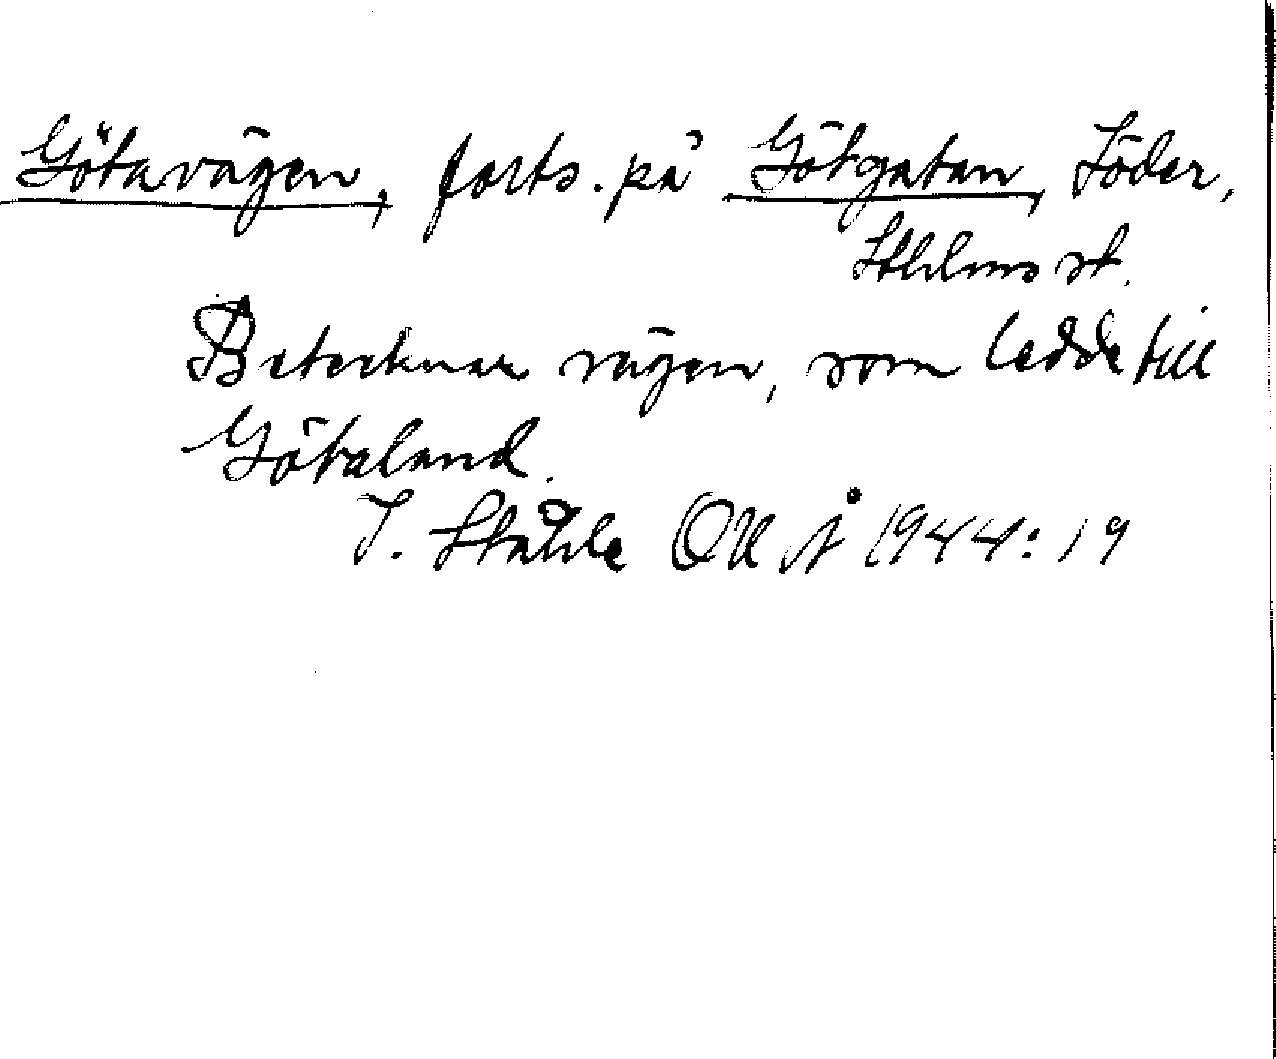 Götavägen, forts. på Götgatan, Söder,
Sthlms st.
Betecknar vägen, som ledde till
Götaland.
I. Ståhle OUÅ 1944: 19